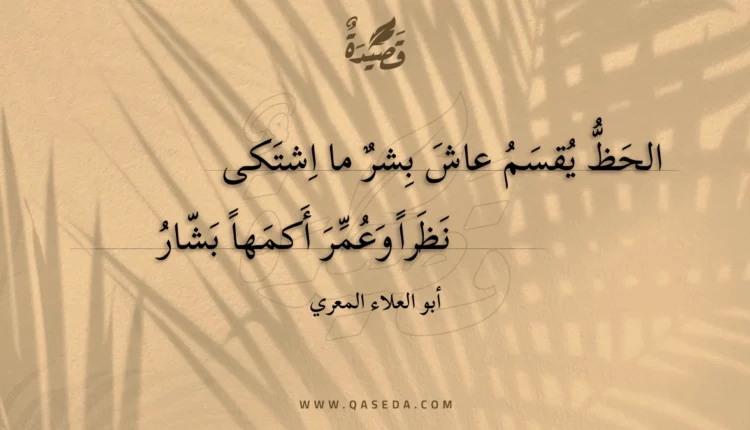 قَصِيْدَةٌ
الحَظُّ يُقسَمُ عاشَ بِشرٌ ما اِشتَكى
نَظَراً وَعُمِّرَ أَكمَهاً بَشّارُ
أبو العلاء المعري
WWW.QASEDA.COM